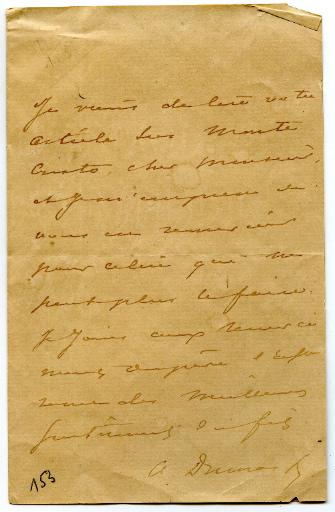 Je viens de lire votre
article sur Monte
Cristo, cher monsieur,
et je m'empresse de
vous en remercier
pour celui qui ne
peut plus le faire.
Je joins aux remerci
ments du père l'
des meilleurs
sentiments du fils
A Dumas fs
153